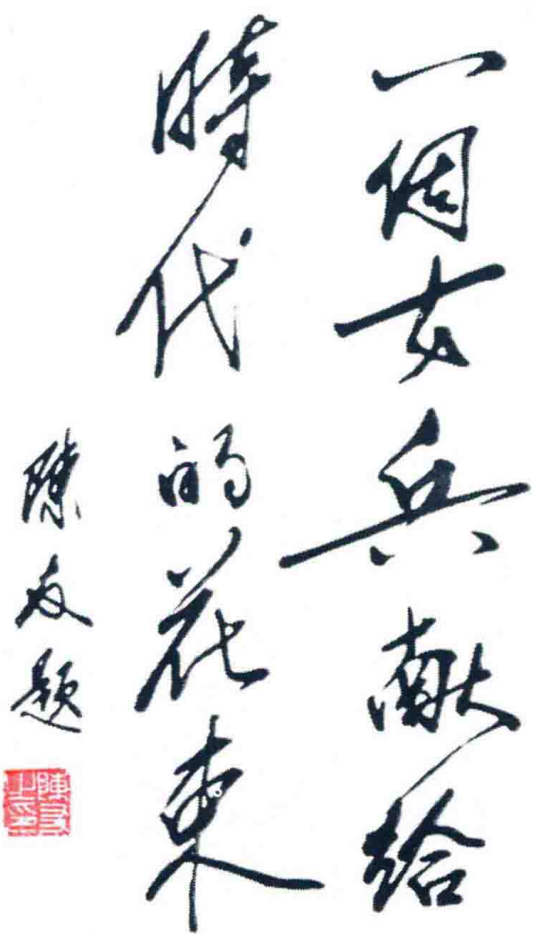 一個女兵献給
時代的花束
陳友題
陳友之印